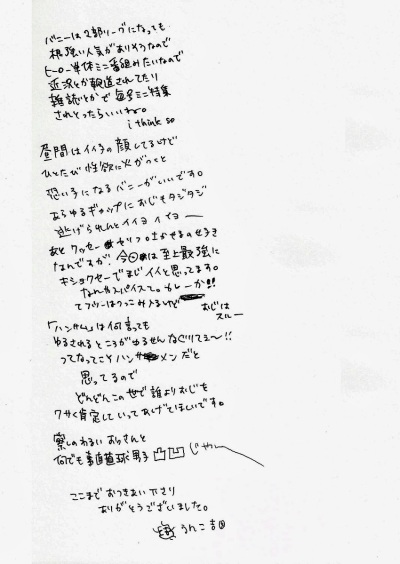 バニーは2部リーグになっても
根強い人気がありそうなので
ヒーロー単体ミニ番組みたいなので
近況とか報道されてたり
雑誌とかで毎号ミニ特集
されとったらいいね。
i think so
昼間はイイ子の顔してるけど
ひとたび性欲に火がつくと
恐い子になるバニーがいいです。
あらゆるギャップにおじもタジタジ
逃げられんとイイヨイイヨー
あとクッセー セリフ吐かせるのも好き
なんですが、今 は至上最強に
キショクセーでまじイイと思ってます。
なんのスパイスて。カレーか!!
てフツーはつっこみ入るけど
おじは
スルー
「ハンサム」は何言っても
ゆるされるところがゆるせんなぐりてェ〜!!
つてなってこそハンサメンだと
思ってるので
どんどんこの世で誰よりおじを
クサく肯定していってあげてほしいです。
察しのわるいおじさんと
何でも直球男子 凸凹じゃー
ここまでおつきあい下さり
ありがとうございました。
うんこ吉